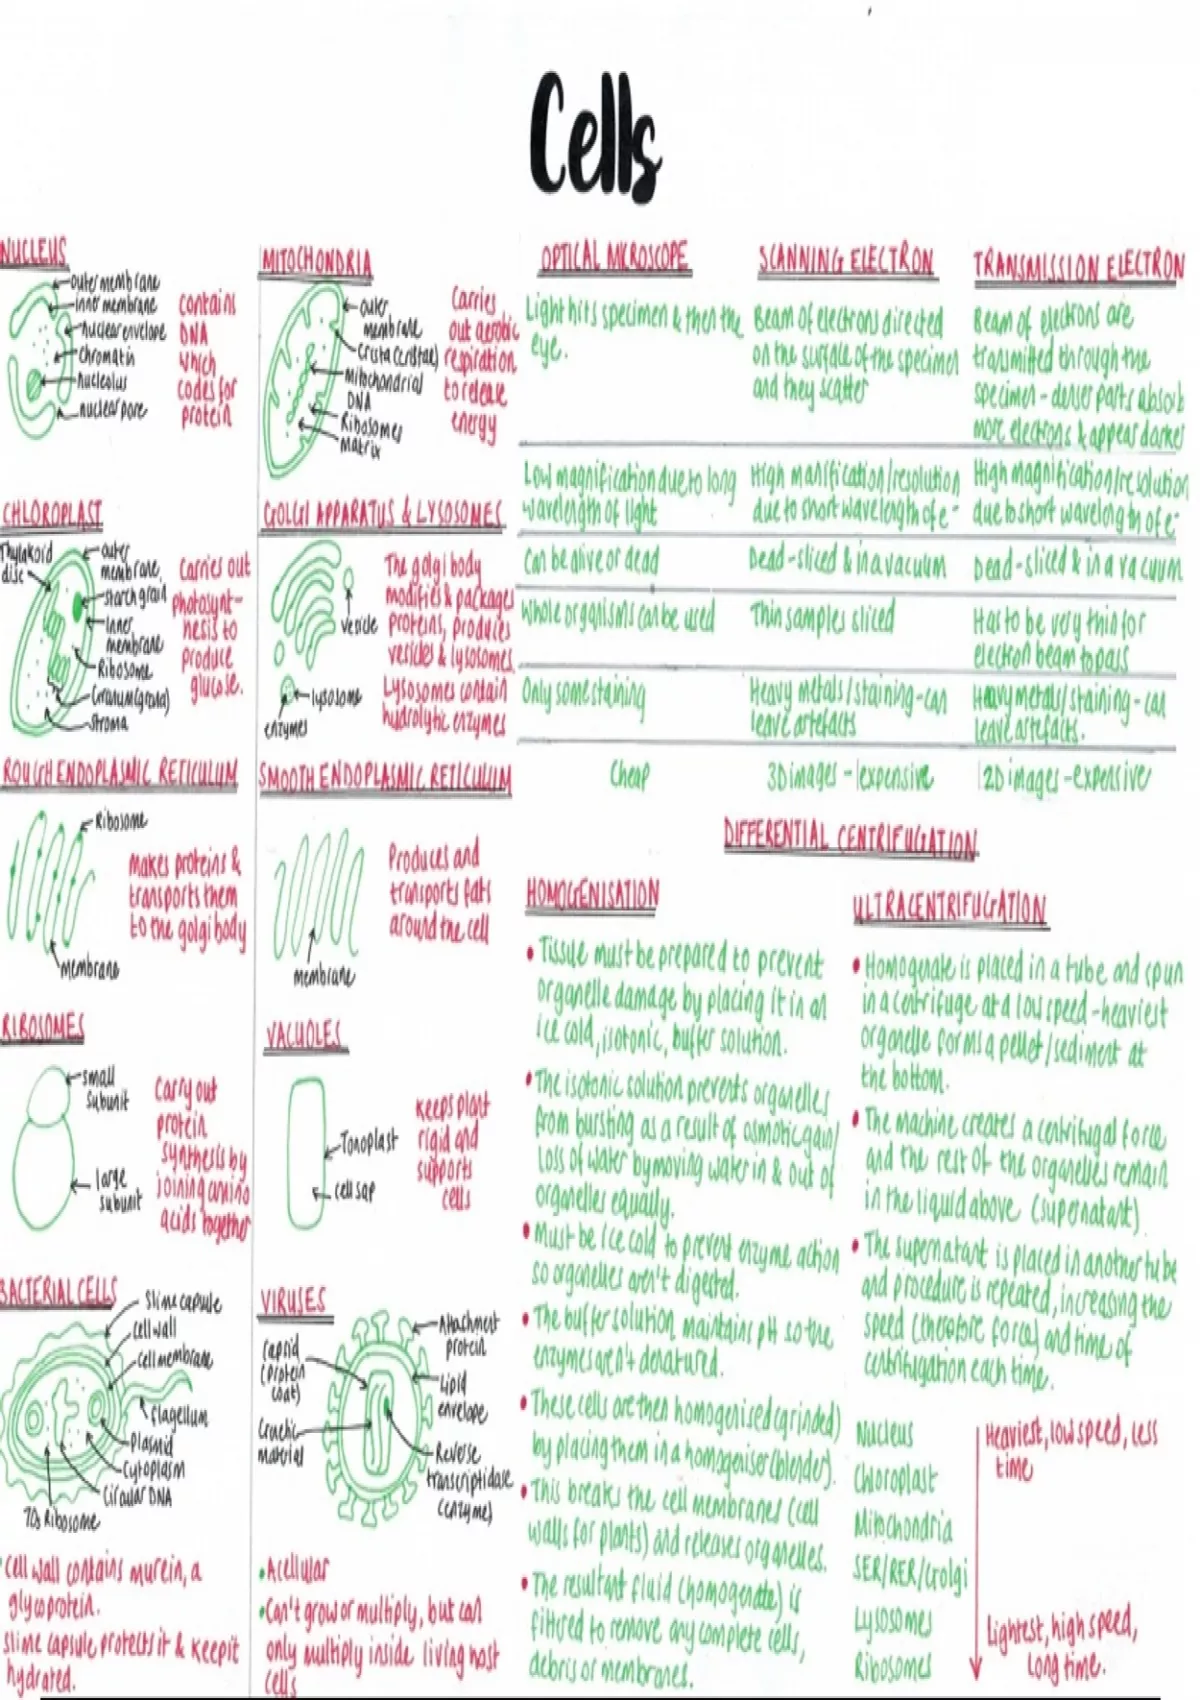 Cells
NUCLEUS
outer membrane
inner membrane
nuclear envelope
chromatin
nucleolus
nuclear pore
contains
DNA
which
codes for
protein
MITOCHONDRIA
outer
membrane
crista (cristae)
Mitochondrial
DNA
Ribosomes
matrix
Carries
out aerobic
respiration
to release
energy
CHLOROPLAST
Thylakoid
disc
outer
membrane
starch grain
Inner
membrane
Ribosome
Granum (grana)
stroma
Carries out
photosynt-
nesis to
produce
glucose.
GOLGI APPARATUS & LYSOSOMES
vesicle
lysosome
enzymes
The golgi body
modifies & packages
proteins, produces
vesicles & lysosomes.
Lysosomes contain
hydrolytic enzymes
ROUGH ENDOPLASMIC RETICULUM
Ribosome
membrane
makes proteins &
transports them
to the golgi body
SMOOTH ENDOPLASMIC RETICULUM
membrane
Produces and
transports fats
around the cell
RIBOSOMES
small
subunit
large
subunit
Carry out
protein
synthesis by
joining amino
acids together
VACUOLES
Tonoplast
cell sap
Keeps plant
rigid and
supports
cells
BACTERIAL CELLS
Slime capsule
cell wall
cell membrane
flagellum
Plasmid
Cytoplasm
Circular DNA
70s Ribosome
• Cell wall contains murein, a
glycoprotein.
Slime capsule protects it & keep it
hydrated.
VIRUSES
Capsid
(protein
coat)
Genetic
material
Attachment
protein
Lipid
envelope
Reverse
transcriptidase
(enzyme)
• Acellular
• Can't grow or multiply, but can
only multiply inside living host
cells
OPTICAL MICROSCOPE
SCANNING ELECTRON
TRANSMISSION ELECTRON
Light hits specimen & then the
eye.
Beam of electrons directed
on the surface of the specimen
and they scatter
Beam of electrons are
transmitted through the
specimen - denser parts absorb
more electrons & appear darker
Low magnification due to long
wavelength of light
High manification/resolution
due to short wavelength of e-
High magnification/resolution
due to short wavelength of e-
Can be alive or dead
Dead - sliced & in a vacuum
Dead - sliced & in a vacuum
Whole organisms can be used
Thin samples sliced
Has to be very thin for
electron beam to pass
Only some staining
Heavy metals / staining - can
leave artefacts
Heavy metals / staining - can
leave artefacts.
Cheap
3D images - expensive
2D images - expensive
DIFFERENTIAL CENTRIFUGATION
HOMOGENISATION
• Tissue must be prepared to prevent
organelle damage by placing it in an
ice cold, isotonic, buffer solution.
• The isotonic solution prevents organelles
from bursting as a result of osmotic gain/
loss of water by moving water in & out of
organelles equally.
• Must be ice cold to prevent enzyme action
so organelles aren't digested.
• The buffer solution maintains pH so the
enzymes aren't denatured.
• These cells are then homogenised (grinded)
by placing them in a homogeniser (blender).
• This breaks the cell membranes (cell
walls for plants) and releases organelles.
• The resultant fluid (homogenate) is
filtered to remove any complete cells,
debris or membranes.
ULTRACENTRIFUGATION
• Homogenate is placed in a tube and spun
in a centrifuge at a low speed - heaviest
organelle forms a pellet / sediment at
the bottom.
• The machine creates a centrifugal force
and the rest of the organelles remain
in the liquid above (supernatant)
• The supernatant is placed in another tube
and procedure is repeated, increasing the
speed (therefore force) and time of
centrifugation each time.
Nucleus
Chloroplast
Mitochondria
SER/RER/Golgi
Lysosomes
Ribosomes
Heaviest, low speed, less
time
Lightest, high speed,
long time.